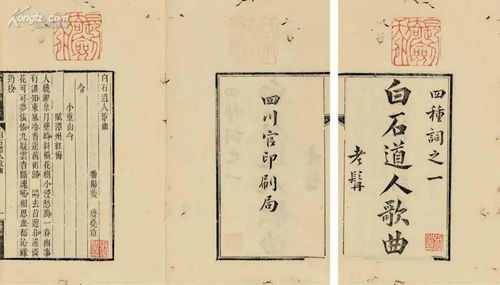 四種詞之一
白石道人歌曲
老髯
四川官印刷局
白石道人歌曲
番陽姜 夔堯章
令
小重山令
賦潭州紅梅
人繞湘皋月墜時斜橫花樹小浸愁漪一春幽事
有誰知東風冷香遠茜裙歸 鷗去昔遊非遙憐
花可可夢依依九疑雲杳斷魂啼相思血都沁綠
筠枝
白石道人歌曲
Kongfz.com